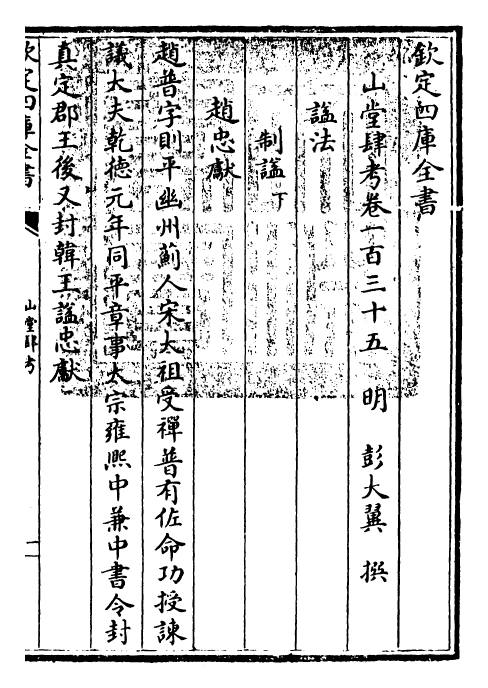 欽定四庫全書
山堂肆考卷一百三十五　明　彭大翼　撰
諡法
制諡丁
趙忠獻
趙普字則平幽州薊人宋太祖受禪普有佐命功授諫
議大夫乾德元年同平章事太宗雍熈中兼中書令封
真定郡王後又封韓王諡忠獻
欽定四庫全書
山堂肆考
一